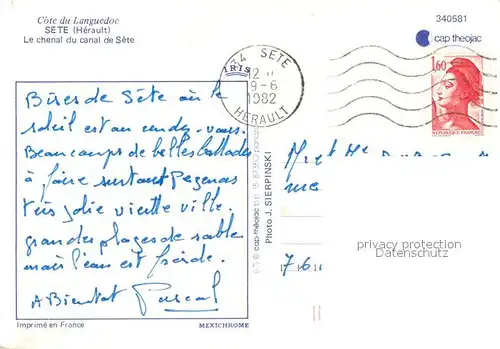 Côte du Languedoc
SETE (Hérault)
Le chenal du canal de Sète
340581
cap théojac
IRIS
34 SETE
12 H
9-6
1982
HERAULT
1,60
REPUBLIQUE FRANÇAISE
Bises de Sète où le
soleil est au rendez-vous.
Beaucoup de belles ballades
à faire surtout Pezenas
très jolie vieille ville.
grandes plages de sable
mais l'eau est froide.
A Bientôt Pascal
Photo J. SIERPINSKI
cap-théojac
Mr et Me
privacy protection
Datenschutz
Imprimé en France
MEXICHROME